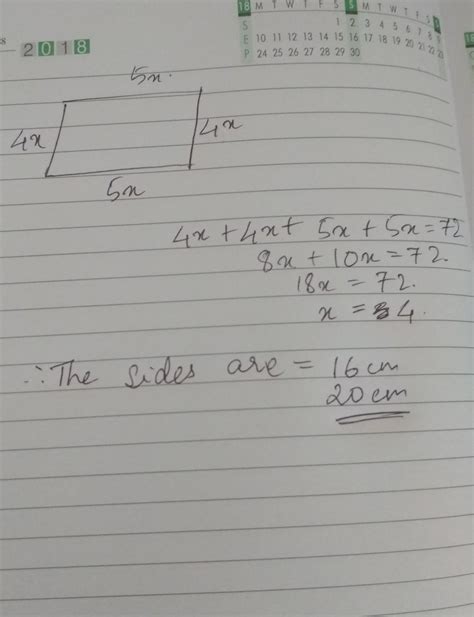 18 M T W T F S S M T W T F S
S 1 2 3 4 5 6 7 8
E 10 11 12 13 14 15 16 17 18 19 20 21 22
P 24 25 26 27 28 29 30
2018
5x
4x
4x
5x
4x + 4x + 5x + 5x = 72
8x + 10x = 72.
18x = 72.
x = 4.
∴ The sides are = 16 cm
20 cm